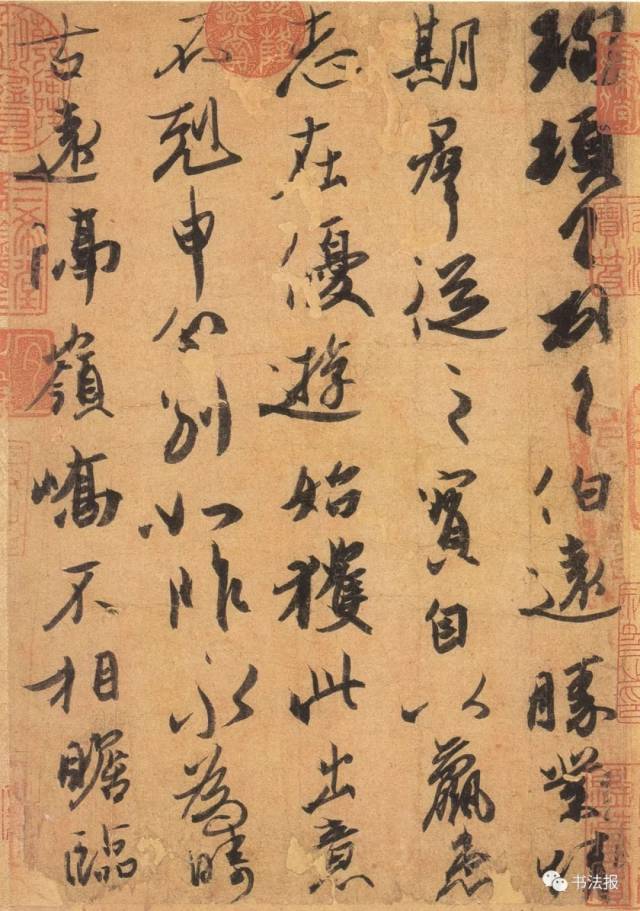 珣頓首頓首伯遠勝業情
期羣從之寶自以羸患
志在優遊始獲此出意
不剋申分別如昨永為疇
古遠隔嶺嶠不相瞻臨
书法报